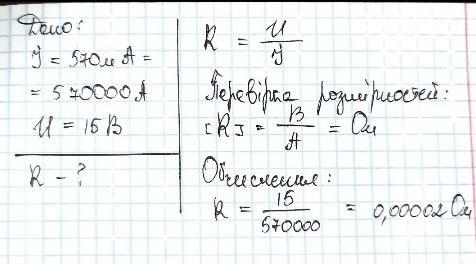 Дано:
I = 570 мА =
= 570000 А
U = 15 В
R - ?
R = U/I
Перевірка розмірностей:
[R] = В/А = Ом
Обчислення:
R = 15/570000 = 0,00002 Ом